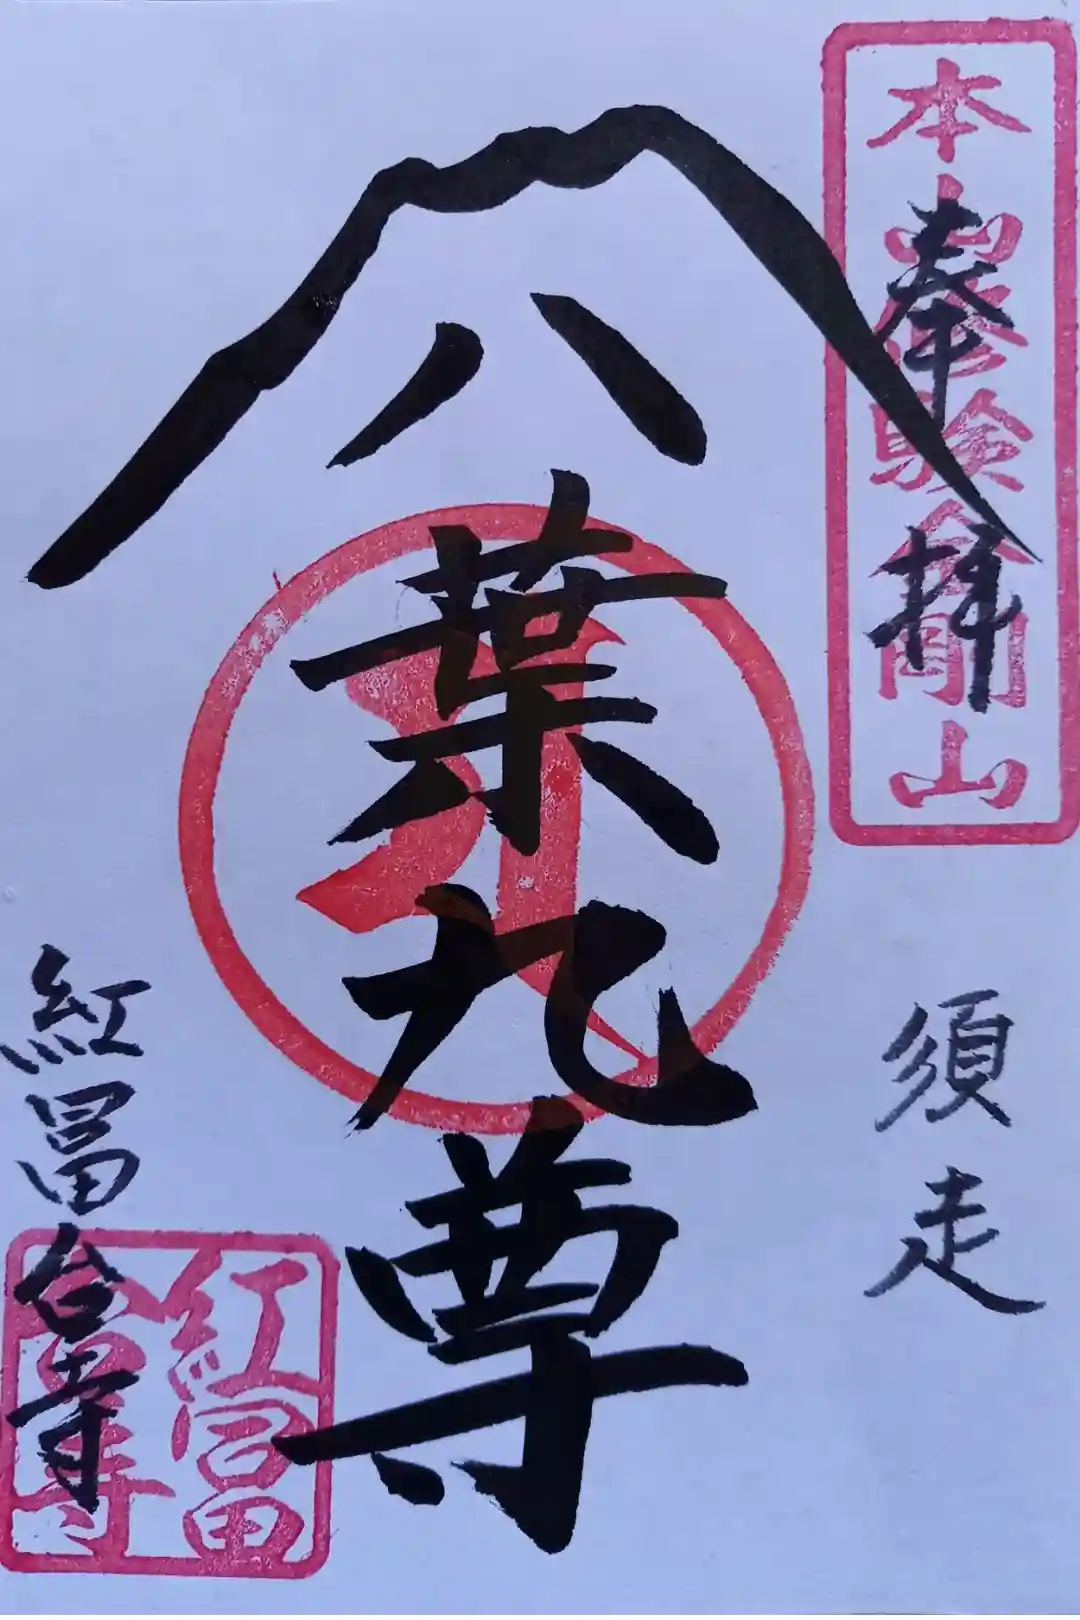 本山修験金剛山
奉拝
須走
八葉九尊
紅冨台寺
紅富